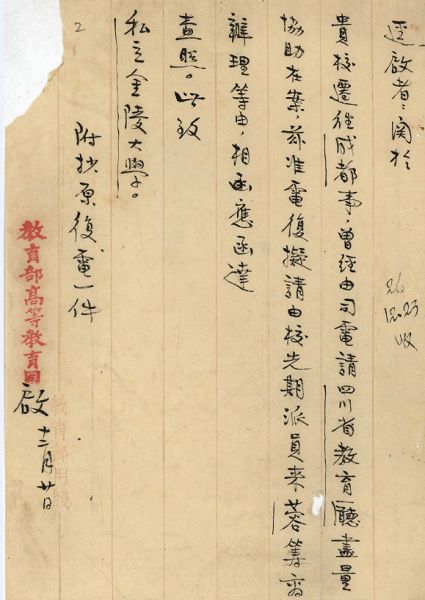 逕啟者：関於
貴校遷往成都事，曾經由司電請四川省教育廳盡量
協助在案，茲准電復擬請由校先期派員來蓉籌商
辦理等由，相函應函達
查照。此致
私立金陵大學。
附抄原復電一件
教育部高等教育司
啟 十二月廿日
教育部用牋
26
12.23
收
2